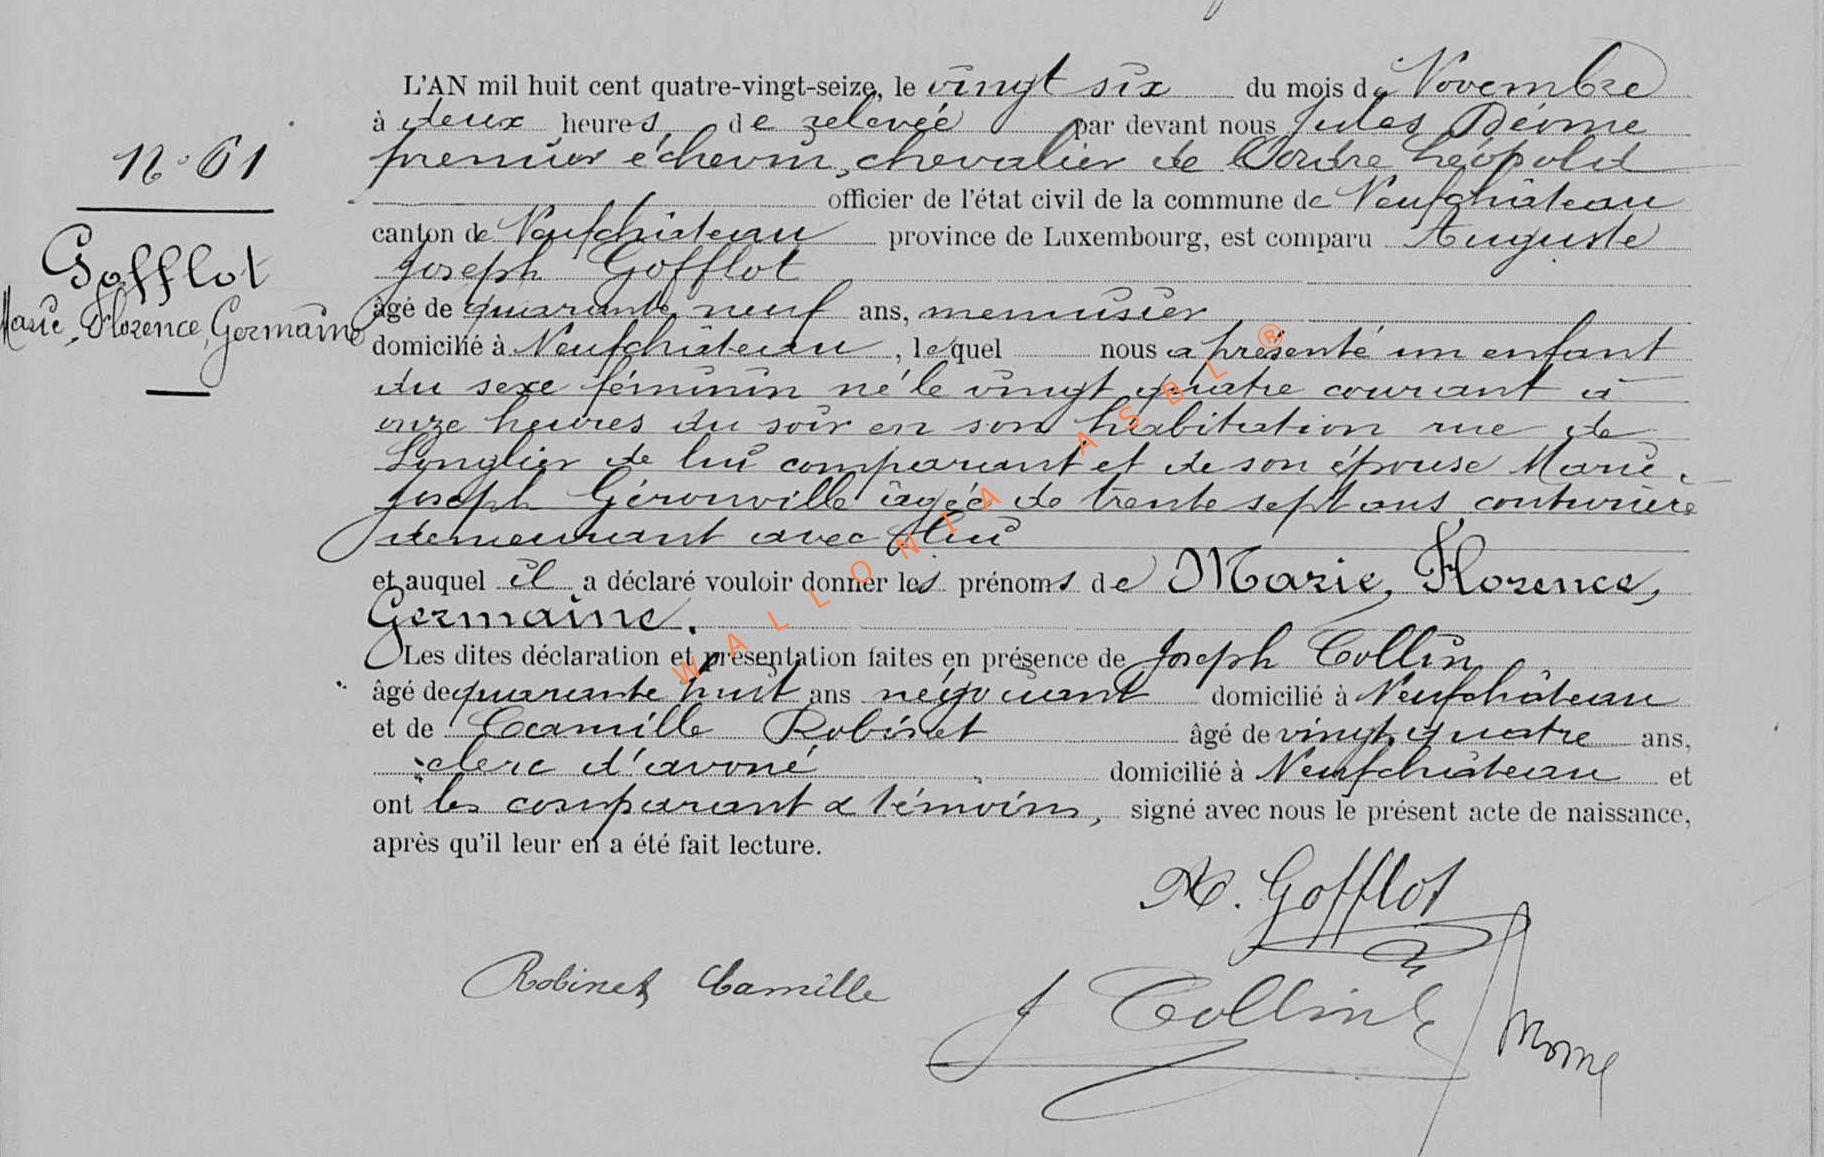 L'AN mil huit cent quatre-vingt-seize, le vingt six du mois de Novembre
à deux heures de relevée par devant nous Jules
premier échevin, chevalier de l'ordre Léopold
officier de l'état civil de la commune de Neufchâteau
canton de Neufchâteau province de Luxembourg, est comparu Auguste
Joseph Gofflot
âgé de quarante neuf ans, menuisier
domicilié à Neufchâteau, lequel nous a présenté un enfant
du sexe féminin né le vingt quatre courant à
onze heures du soir en son habitation rue de
Longlier de lui comparant et de son épouse Marie
Joseph Géronville âgée de trente sept ans couturière
demeurant avec lui
et auquel il a déclaré vouloir donner les prénoms de Marie, Florence,
Germaine.
Les dites déclaration et présentation faites en présence de Joseph Collin
âgé de quarante huit ans négociant domicilié à Neufchâteau
et de Camille Robinet âgé de vingt quatre ans,
clerc d'avoué domicilié à Neufchâteau et
ont les comparant & témoins, signé avec nous le présent acte de naissance,
après qu'il leur en a été fait lecture.
N° 61
Gofflot
Marie, Florence, Germaine
A. Gofflot
Robinet Camille
J Collin
WALLONIA ASBL ®